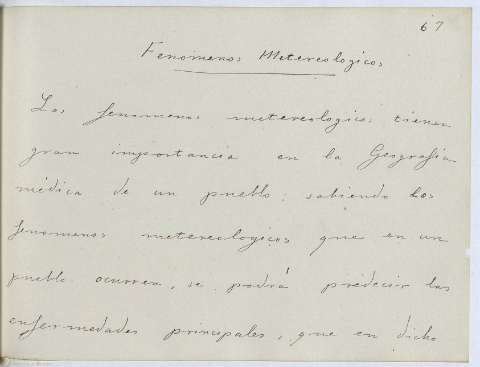 67
Fenomenos Metereologicos
Los fenomenos metereologicos tienen
gran importancia en la Geografia
médica de un pueblo; sabiendo los
fenomenos metereologicos que en un
pueblo ocurren, se podrá predecir las
enfermedades principales, que en dicho